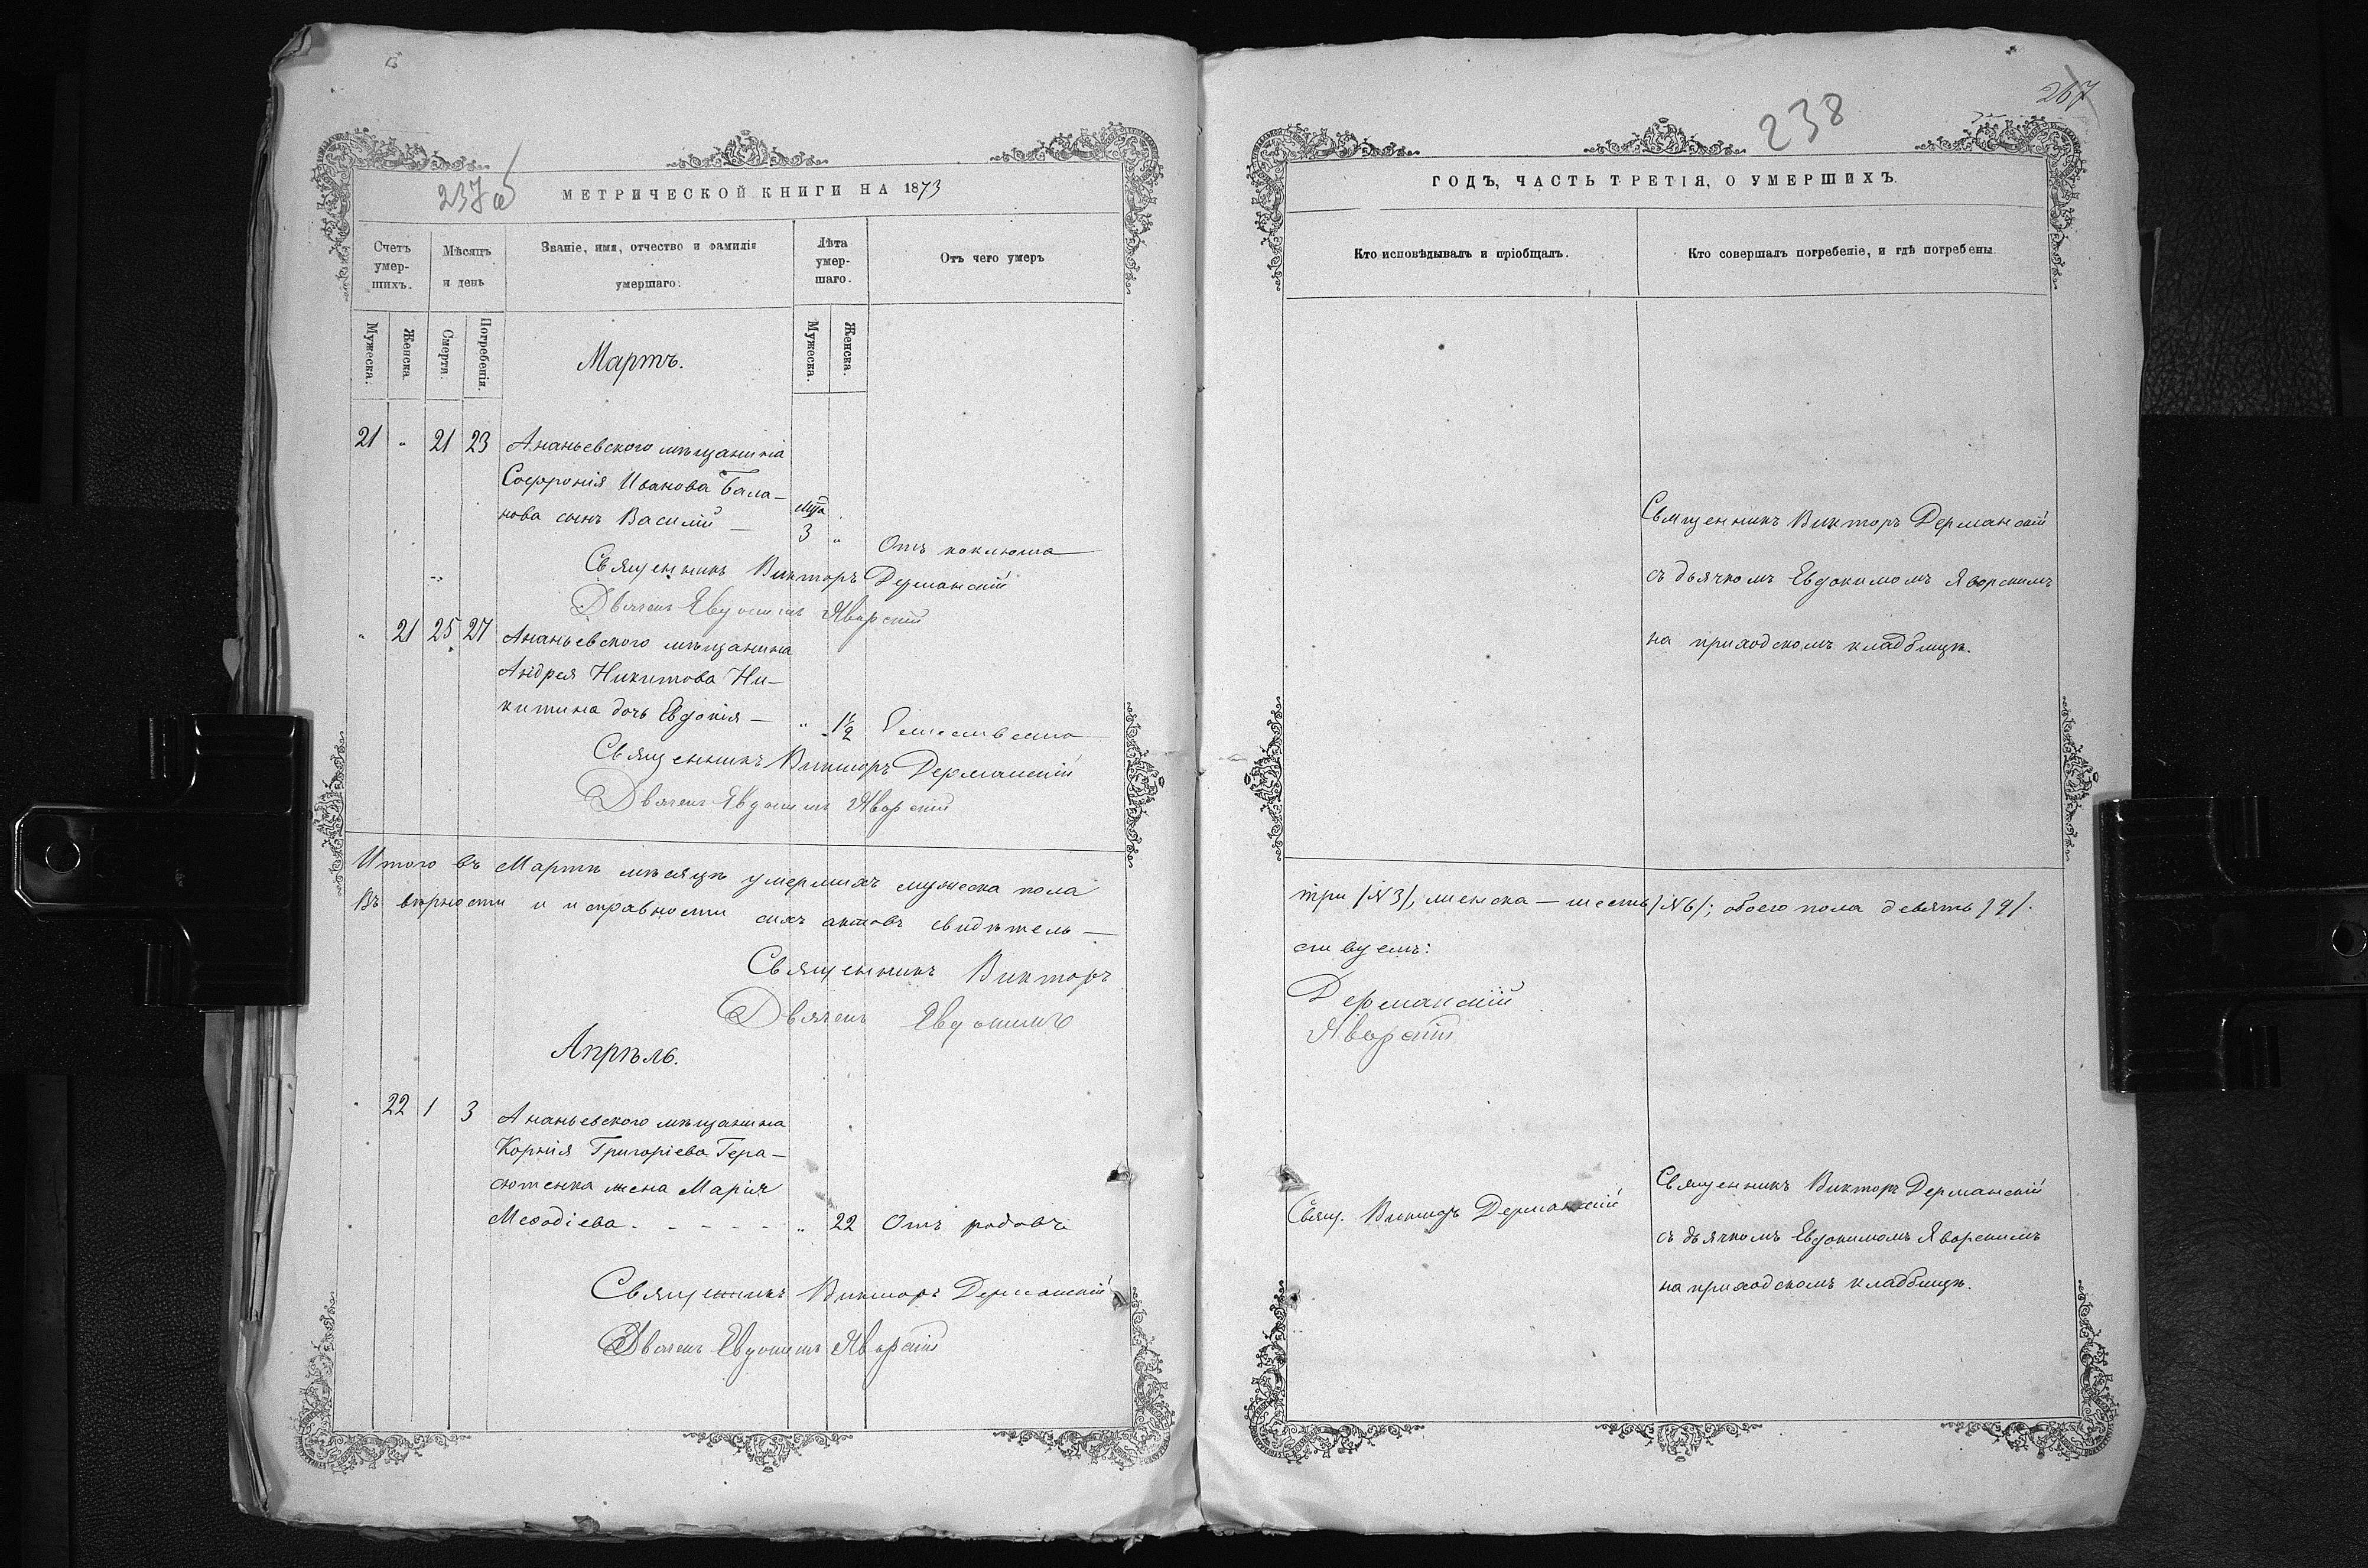 237 об
МЕТРИЧЕСКОЙ КНИГИ НА 1873
Счетъ умер-шихъ.
Мѣсяцъ и день
Званіе, имя, отчество и фамилія умершаго.
Лѣта умер-шаго.
Отъ чего умеръ
Мужеска.
Женска
Смерти.
Погребенія.
Мужеска.
Женска.
Мартъ.
21 " 21 23 Ананьевского мѣщанина
Софронія Иванова Бала-
нова сынъ Василій —
3 " Отъ коклюша
Священникъ Викторъ Дерманскій
Дьячекъ Евдокимъ Яворскій
" 21 25 27 Ананьевского мѣщанина
Андрея Никитова Ни-
китина дочь Евдокія — " 1½
Священникъ Викторъ Дерманскій
Дьячекъ Евдокимъ Яворскій
Итого въ Мартѣ мѣсяцѣ умершихъ мужеска пола
Въ вѣрности и исправности сихъ актовъ свидѣтель-
Священникъ Викторъ
Дьячекъ Евдокимъ
Апрѣль.
" 22 1 3 Ананьевского мѣщанина
Корнія Григоріева Гера-
сютенка жена Марія
Меѳодіева - - - - - " 22 Отъ родовъ
Священникъ Викторъ Дерманскій
Дьячекъ Евдокимъ Яворскій
267
238
ГОДЪ, ЧАСТЬ ТРЕТІЯ, О УМЕРШИХЪ.
Кто исповѣдывалъ и пріобщалъ.
Кто совершалъ погребеніе, и гдѣ погребены
Священникъ Викторъ Дерманскій
съ дьячкомъ Евдокимомъ Яворскимъ
на приходскомъ кладбищѣ.
три /№3/, женска — шесть /№6/; обоего пола девять /9/.
ствуемъ:
Дерманскій
Яворскій
Свящ. Викторъ Дерманскій
Священникъ Викторъ Дерманскій
съ дьячкомъ Евдокимомъ Яворскимъ
на приходскомъ кладбищѣ.